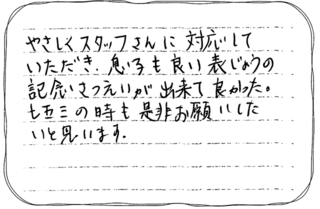 やさしくスタッフさんに対応して
いただき、息子も良い表じょうの
記念さつえいが出来て良かった。
七五三の時も是非お願いした
いと思います。